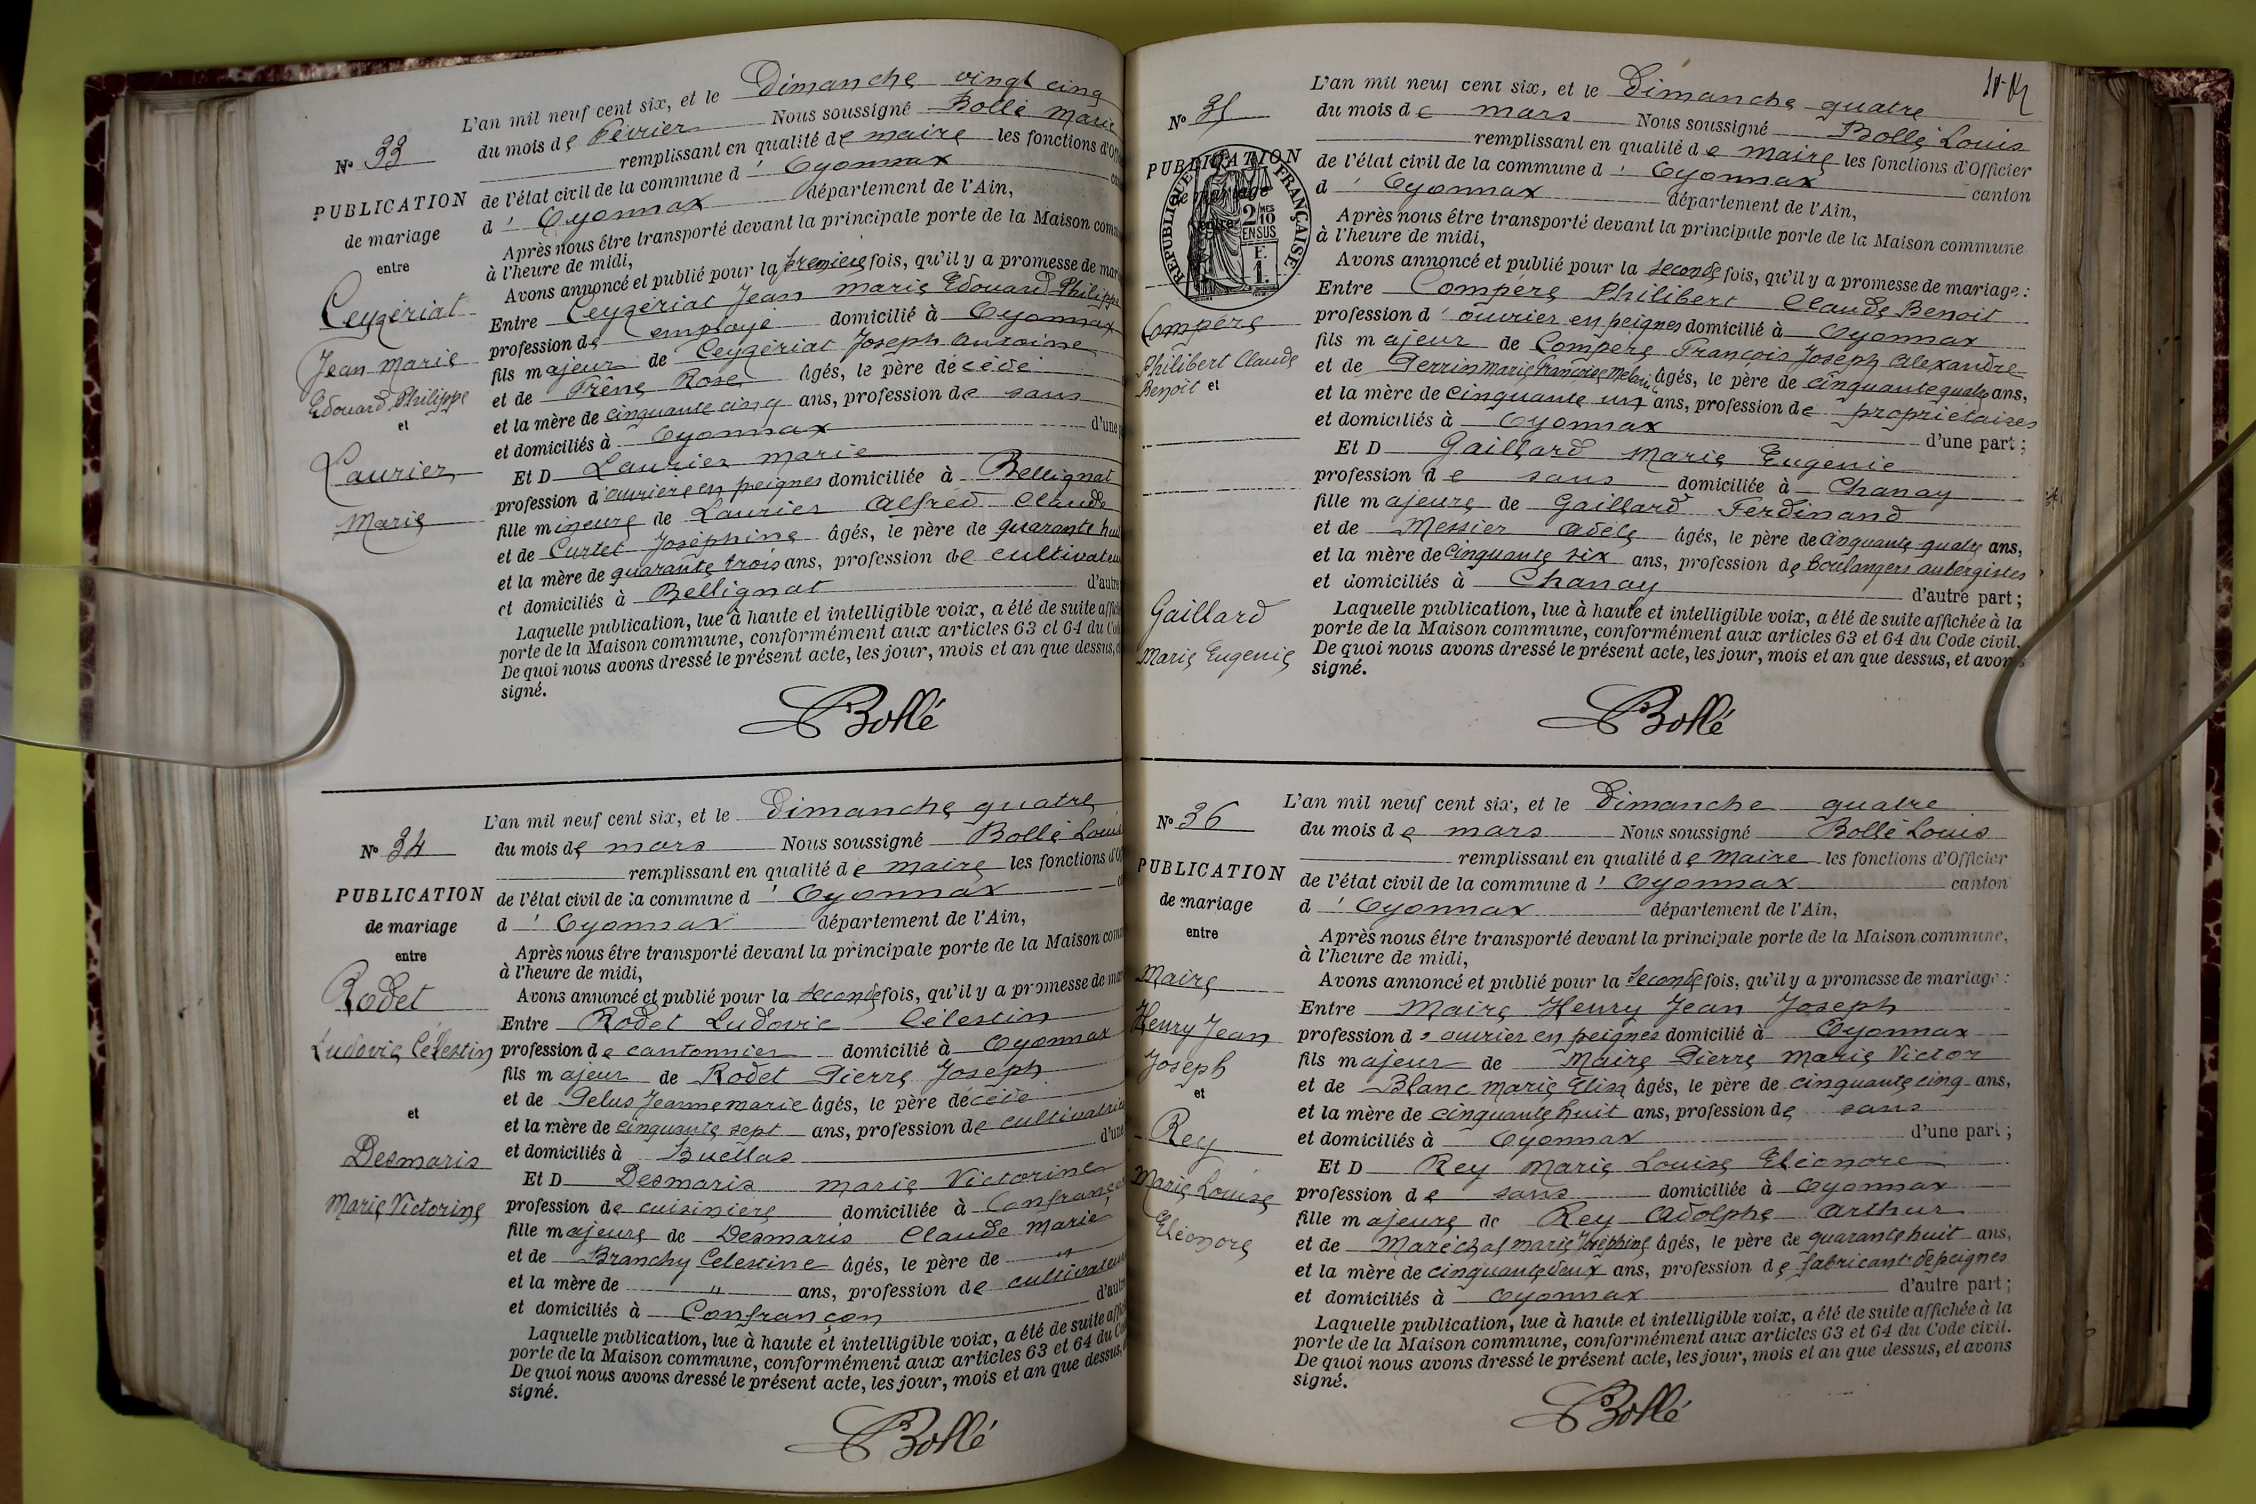 N° 33
PUBLICATION
de mariage
entre
Ceyzériat
Jean Marie
Edouard Philippe
et
Laurier
Marie
L'an mil neuf cent six, et le Dimanche vingt cinq
du mois de Février Nous soussigné Bollé
remplissant en qualité de maire les fonctions d'Off
de l'état civil de la commune d' Oyonnax
d' Oyonnax département de l'Ain,
Après nous être transporté devant la principale porte de la Maison comm
à l'heure de midi,
Avons annoncé et publié pour la première fois, qu'il y a promesse de mar
Entre Ceyzériat Jean Marie Edouard Philippe
profession de employé domicilié à Oyonnax
fils majeur de Ceyzériat Joseph Antoine
et de Frêne Rose âgés, le père décédé
et la mère de cinquante cinq ans, profession de sans
et domiciliés à Oyonnax d'une p
Et D Laurier Marie
profession d'ouvrière en peignes domiciliée à Bellignat
fille mineure de Laurier Alfred Claude
et de Curtet Joséphine âgés, le père de quarante hui
et la mère de quarante trois ans, profession de cultivateu
et domiciliés à Bellignat d'autre
Laquelle publication, lue à haute et intelligible voix, a été de suite affich
porte de la Maison commune, conformément aux articles 63 et 64 du Code
De quoi nous avons dressé le présent acte, les jour, mois et an que dessus,
signé.
Bollé
N° 34
PUBLICATION
de mariage
entre
Rodet
Ludovic Célestin
et
Desmaris
Marie Victorine
L'an mil neuf cent six, et le Dimanche quatre
du mois de mars Nous soussigné Bollé Louis
remplissant en qualité de maire les fonctions d'Of
de l'état civil de la commune d' Oyonnax
d' Oyonnax département de l'Ain,
Après nous être transporté devant la principale porte de la Maison com
à l'heure de midi,
Avons annoncé et publié pour la seconde fois, qu'il y a promesse de mar
Entre Rodet Ludovic Célestin
profession de cantonnier domicilié à Oyonnax
fils majeur de Rodet Pierre Joseph
et de Pelus Jeanne Marie âgés, le père décédé
et la mère de cinquante sept ans, profession de cultivatrice
et domiciliés à Buellas d'une
Et D Desmaris Marie Victorine
profession de cuisinière domiciliée à Confrançon
fille majeure de Desmaris Claude Marie
et de Branchy Celestine âgés, le père de "
et la mère de " ans, profession de cultivateurs
et domiciliés à Confrançon d'autr
Laquelle publication, lue à haute et intelligible voix, a été de suite affic
porte de la Maison commune, conformément aux articles 63 et 64 du Co
De quoi nous avons dressé le présent acte, les jour, mois et an que dessus,
signé.
Bollé
N° 35
PUBLICATION
de mariage
entre
RÉPUBLIQUE FRANÇAISE
2/10 MES
EN SUS
F.
1.
Compère
Philibert Claude
Benoit et
Gaillard
Marie Eugenie
L'an mil neuf cent six, et le Dimanche quatre
du mois de mars Nous soussigné Bollé Louis
remplissant en qualité de maire les fonctions d'Officier
de l'état civil de la commune d' Oyonnax canton
d' Oyonnax département de l'Ain,
Après nous être transporté devant la principale porte de la Maison commune
à l'heure de midi,
Avons annoncé et publié pour la seconde fois, qu'il y a promesse de mariage :
Entre Compère Philibert Claude Benoit
profession d'ouvrier en peignes domicilié à Oyonnax
fils majeur de Compère François Joseph Alexandre
et de Perrin Marie Françoise Melanie âgés, le père de cinquante quatre ans,
et la mère de cinquante un ans, profession de propriétaires
et domiciliés à Oyonnax d'une part ;
Et D Gaillard Marie Eugenie
profession de sans domiciliée à Chanay
fille majeure de Gaillard Ferdinand
et de Messier Adèle âgés, le père de cinquante quatre ans,
et la mère de cinquante six ans, profession de boulangers aubergistes
et domiciliés à Chanay d'autre part ;
Laquelle publication, lue à haute et intelligible voix, a été de suite affichée à la
porte de la Maison commune, conformément aux articles 63 et 64 du Code civil.
De quoi nous avons dressé le présent acte, les jour, mois et an que dessus, et avons
signé.
Bollé
N° 36
PUBLICATION
de mariage
entre
Maire
Henry Jean
Joseph
et
Rey
Marie Louise
Eléonore
L'an mil neuf cent six, et le Dimanche quatre
du mois de mars Nous soussigné Bollé Louis
remplissant en qualité de Maire les fonctions d'Officier
de l'état civil de la commune d' Oyonnax canton
d' Oyonnax département de l'Ain,
Après nous être transporté devant la principale porte de la Maison commune,
à l'heure de midi,
Avons annoncé et publié pour la seconde fois, qu'il y a promesse de mariage :
Entre Maire Henry Jean Joseph
profession d'ouvrier en peignes domicilié à Oyonnax
fils majeur de Maire Pierre Marie Victor
et de Blanc Marie Elisa âgés, le père de cinquante cinq ans,
et la mère de cinquante huit ans, profession de sans
et domiciliés à Oyonnax d'une part ;
Et D Rey Marie Louise Eléonore
profession de sans domiciliée à Oyonnax
fille majeure de Rey Adolphe Arthur
et de Maréchal Marie Joséphine âgés, le père de quarante huit ans,
et la mère de cinquante deux ans, profession de fabricant de peignes
et domiciliés à Oyonnax d'autre part ;
Laquelle publication, lue à haute et intelligible voix, a été de suite affichée à la
porte de la Maison commune, conformément aux articles 63 et 64 du Code civil.
De quoi nous avons dressé le présent acte, les jour, mois et an que dessus, et avons
signé.
Bollé